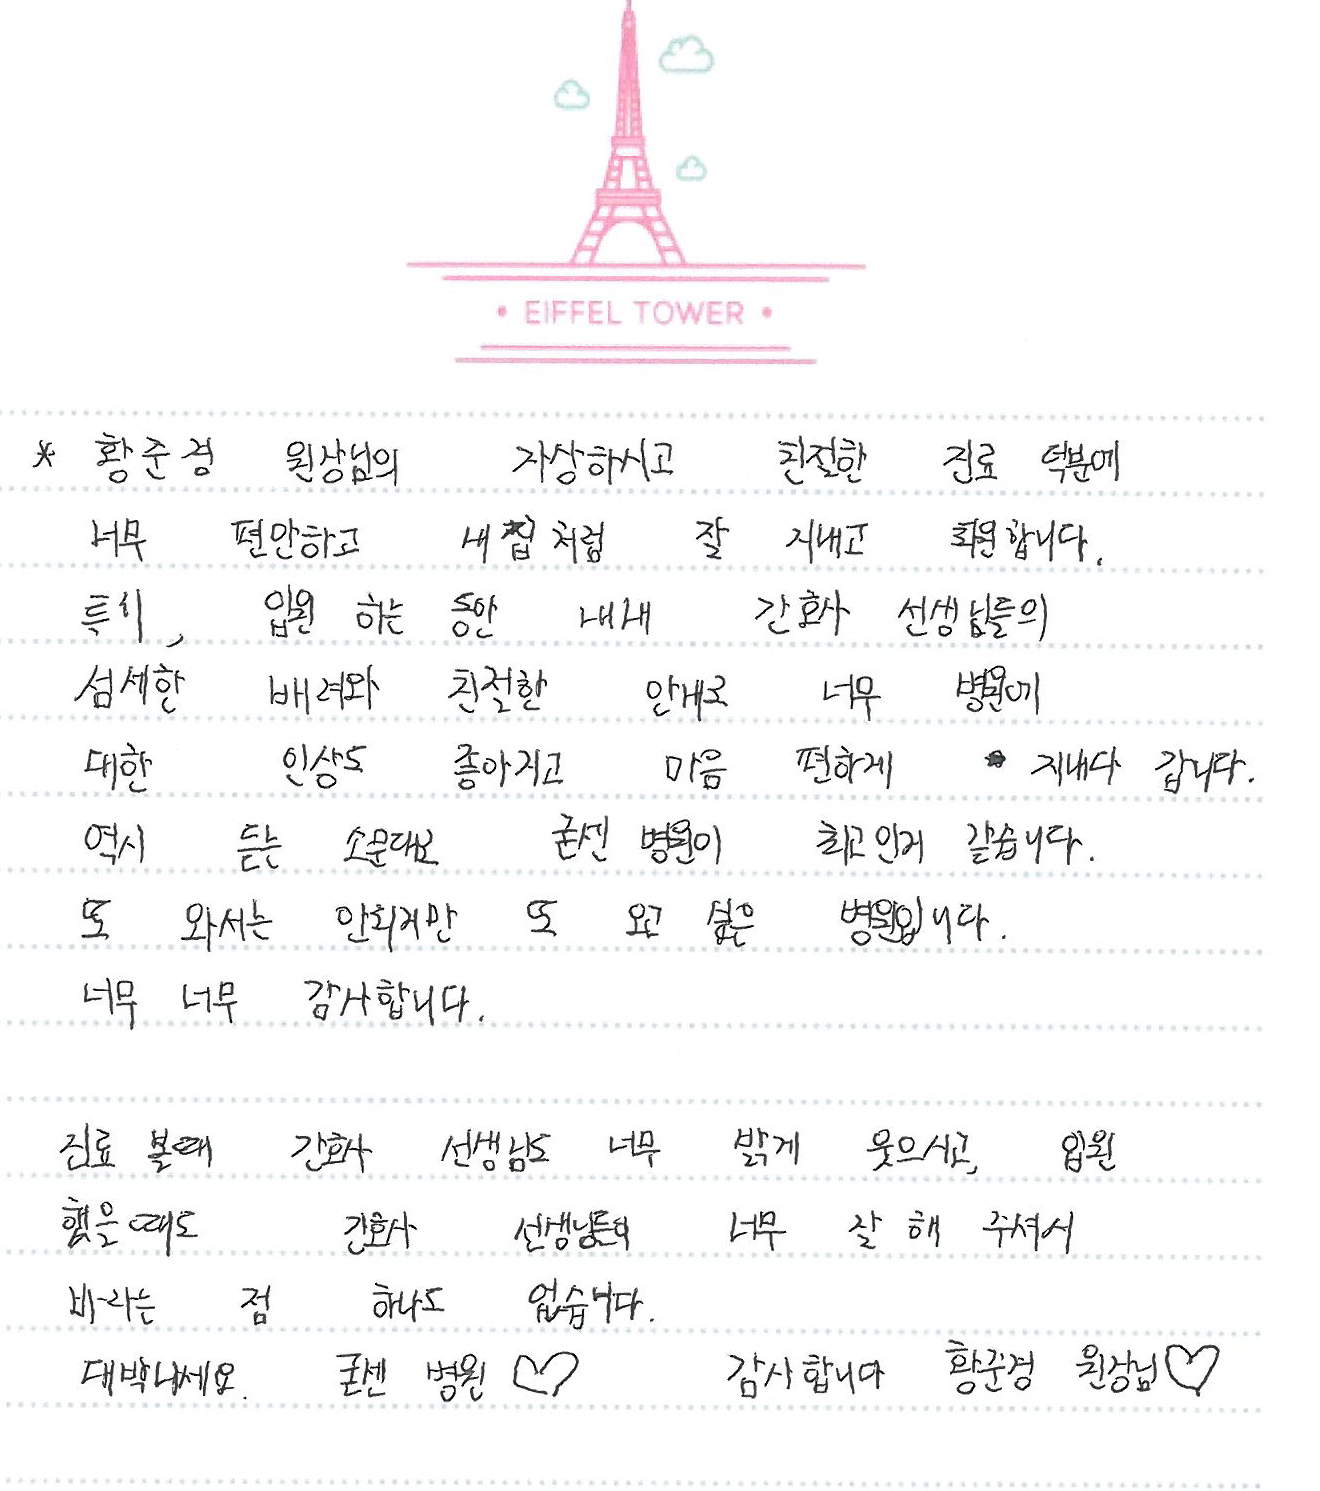 • EIFFEL TOWER •
* 황준경 원장님의 자상하시고 친절한 진료 덕분에
너무 편안하고 내 집처럼 잘 지내고 퇴원합니다.
특히, 입원 하는 동안 내내 간호사 선생님들의
섬세한 배려와 친절한 안내로 너무 병원에
대한 인상도 좋아지고 마음 편하게 지내다 갑니다.
역시 듣는 소문대로 굳센 병원이 최고인거 같습니다.
또 와서는 안되지만 또 오고 싶은 병원입니다.
너무 너무 감사합니다.
진료 볼때 간호사 선생님도 너무 밝게 웃으시고, 입원
했을때도 간호사 선생님들의 너무 잘 해 주셔서
바라는 점 하나도 없습니다.
대박나세요. 굳센 병원 ♡ 감사합니다 황준경 원장님♡